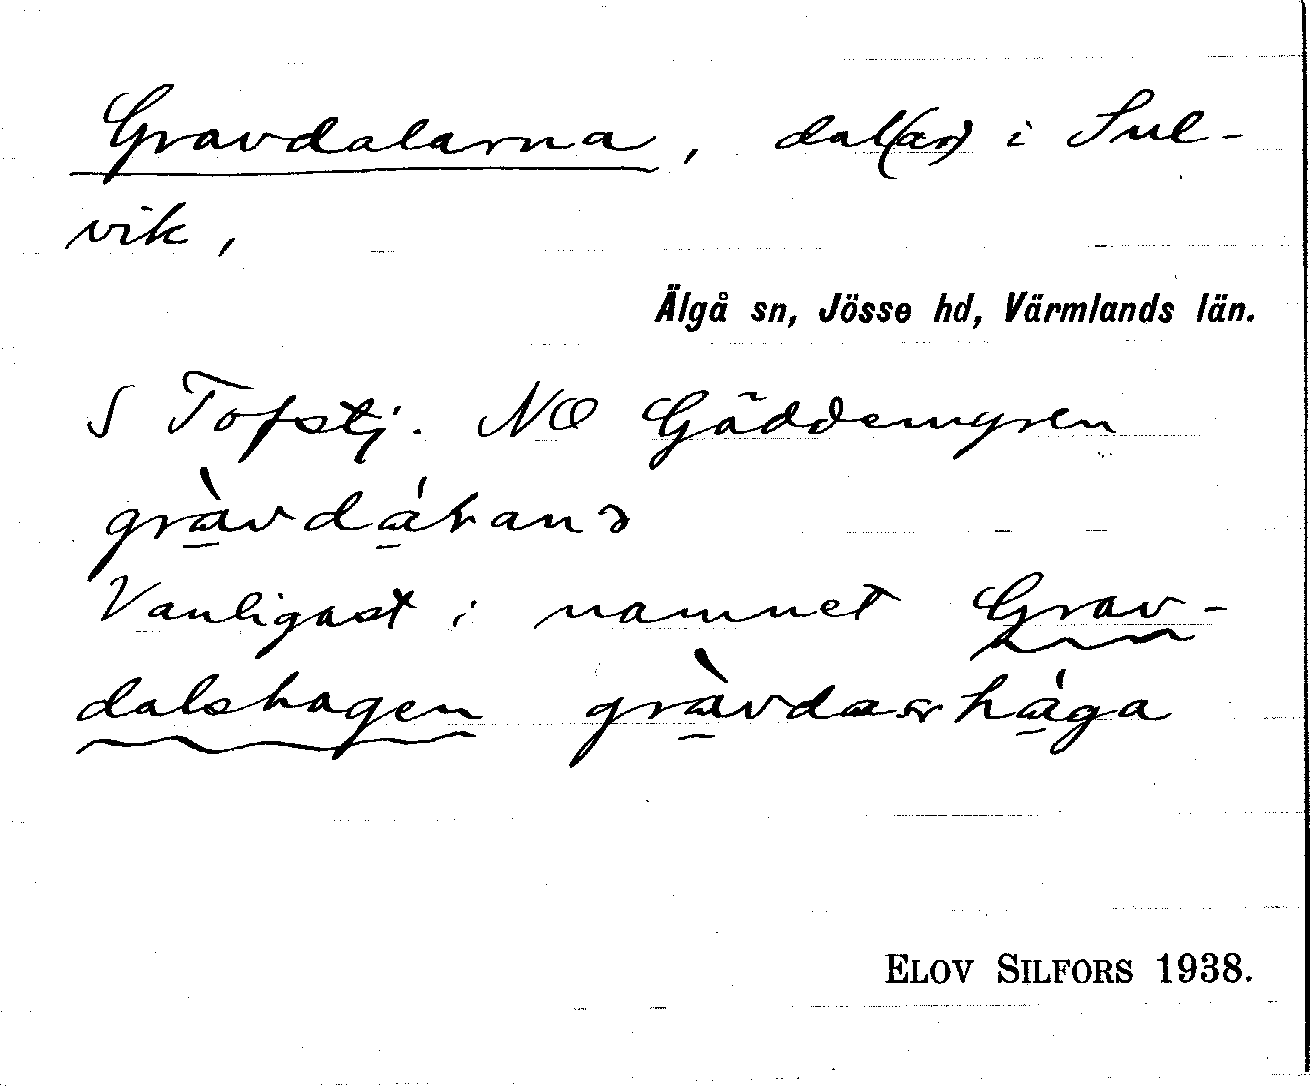 Gravdalarna, dal(ar) i Sul-
vik,
Älgå sn, Jösse hd, Värmlands län.
S Tofstj. NO Gäddemyren
gràvdáƚanə
Vanligast i namnet Grav-
dalshagen gràvdasrhága
ELOV SILFORS 1938.